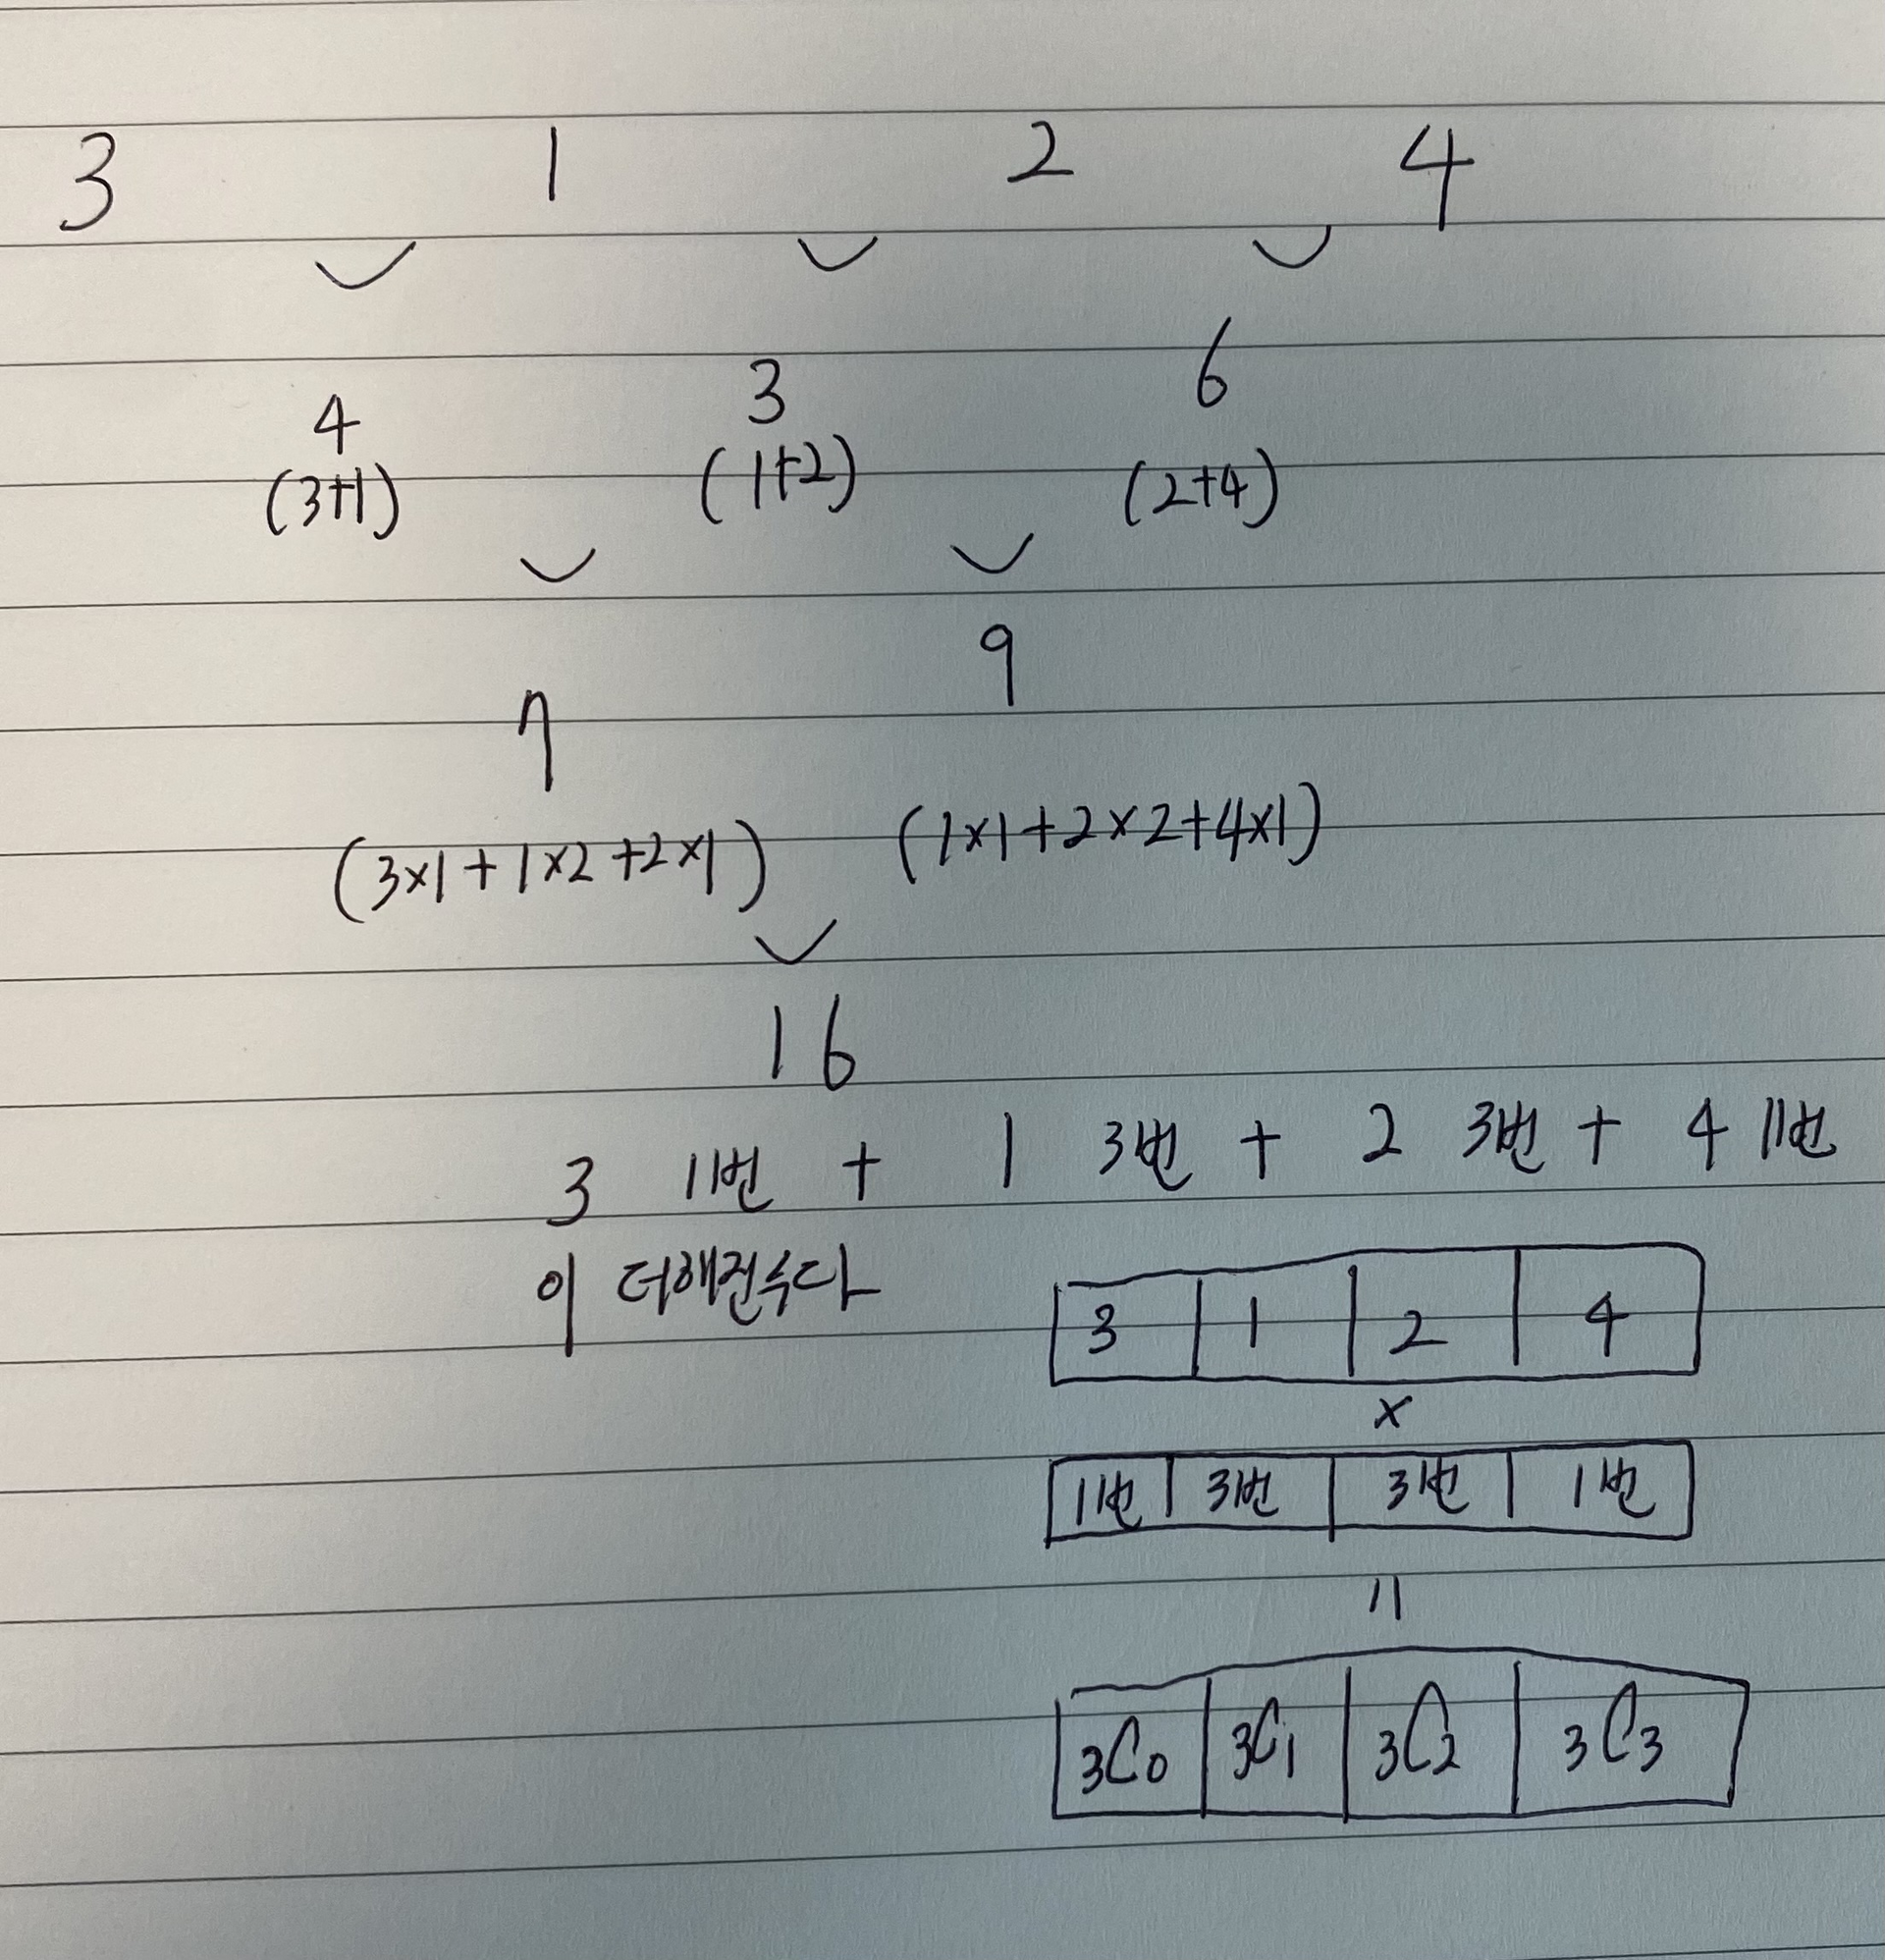 3 1 2 4
4 3 6
(3+1) (1+2) (2+4)
7 9
(3×1+1×2+2×1) (1×1+2×2+4×1)
16
3 1번 + 1 3번 + 2 3번 + 4 1번
이 더해진수다
3 1 2 4
×
1번 3번 3번 1번
=
3C0 3C1 3C2 3C3